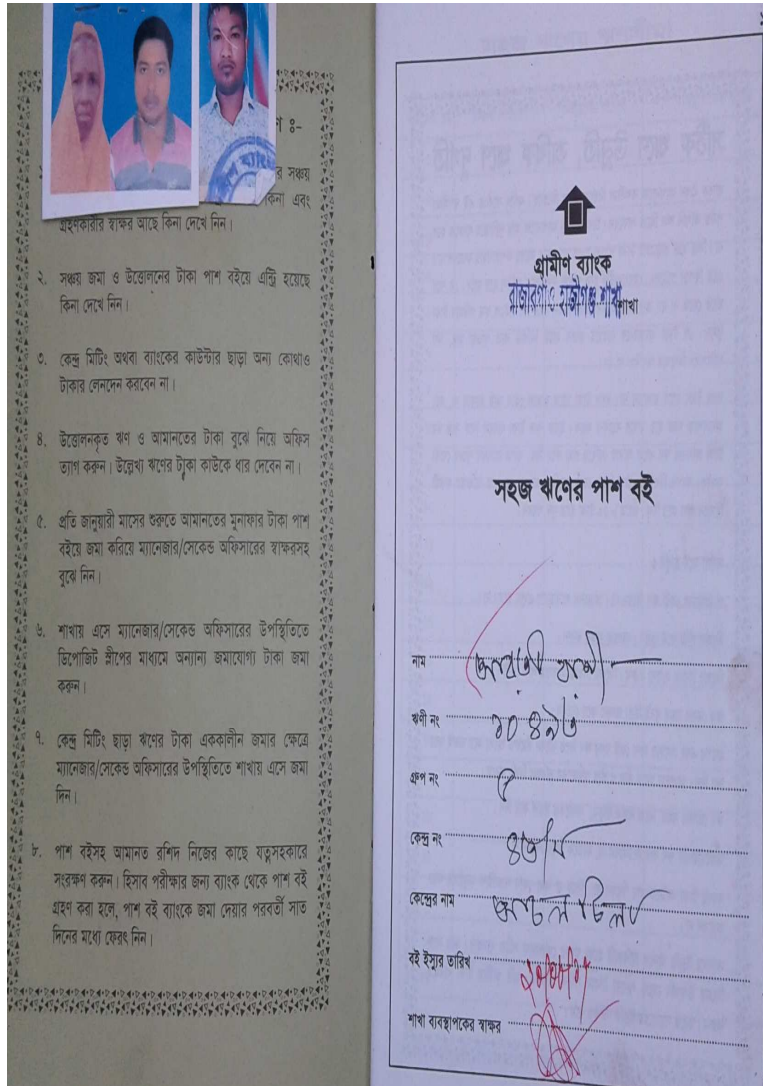 ণ ঃ-
র সঞ্চয়
কিনা এবং
গ্রহণকারীর স্বাক্ষর আছে কিনা দেখে নিন।
২. সঞ্চয় জমা ও উত্তোলনের টাকা পাশ বইয়ে এন্ট্রি হয়েছে
কিনা দেখে নিন।
৩. কেন্দ্র মিটিং অথবা ব্যাংকের কাউন্টার ছাড়া অন্য কোথাও
টাকার লেনদেন করবেন না।
৪. উত্তোলনকৃত ঋণ ও আমানতের টাকা বুঝে নিয়ে অফিস
ত্যাগ করুন। উল্লেখ্য ঋণের টাকা কাউকে ধার দেবেন না।
৫. প্রতি জানুয়ারী মাসের শুরুতে আমানতের মুনাফার টাকা পাশ
বইয়ে জমা করিয়ে ম্যানেজার/সেকেন্ড অফিসারের স্বাক্ষরসহ
বুঝে নিন।
৬. শাখায় এসে ম্যানেজার/সেকেন্ড অফিসারের উপস্থিতিতে
ডিপোজিট স্লীপের মাধ্যমে অন্যান্য জমাযোগ্য টাকা জমা
করুন।
৭. কেন্দ্র মিটিং ছাড়া ঋণের টাকা এককালীন জমার ক্ষেত্রে
ম্যানেজার/সেকেন্ড অফিসারের উপস্থিতিতে শাখায় এসে জমা
দিন।
৮. পাশ বইসহ আমানত রশিদ নিজের কাছে যত্নসহকারে
সংরক্ষণ করুন। হিসাব পরীক্ষার জন্য ব্যাংক থেকে পাশ বই
গ্রহণ করা হলে, পাশ বই ব্যাংকে জমা দেয়ার পরবর্তী সাত
দিনের মধ্যে ফেরৎ নিন।
গ্রামীণ ব্যাংক
রাজারগাঁও হাজীগঞ্জ শাখা শাখা
সহজ ঋণের পাশ বই
নাম
ঋণী নং
গ্রুপ নং ৫
কেন্দ্র নং
কেন্দ্রের নাম
বই ইস্যুর তারিখ
শাখা ব্যবস্থাপকের স্বাক্ষর